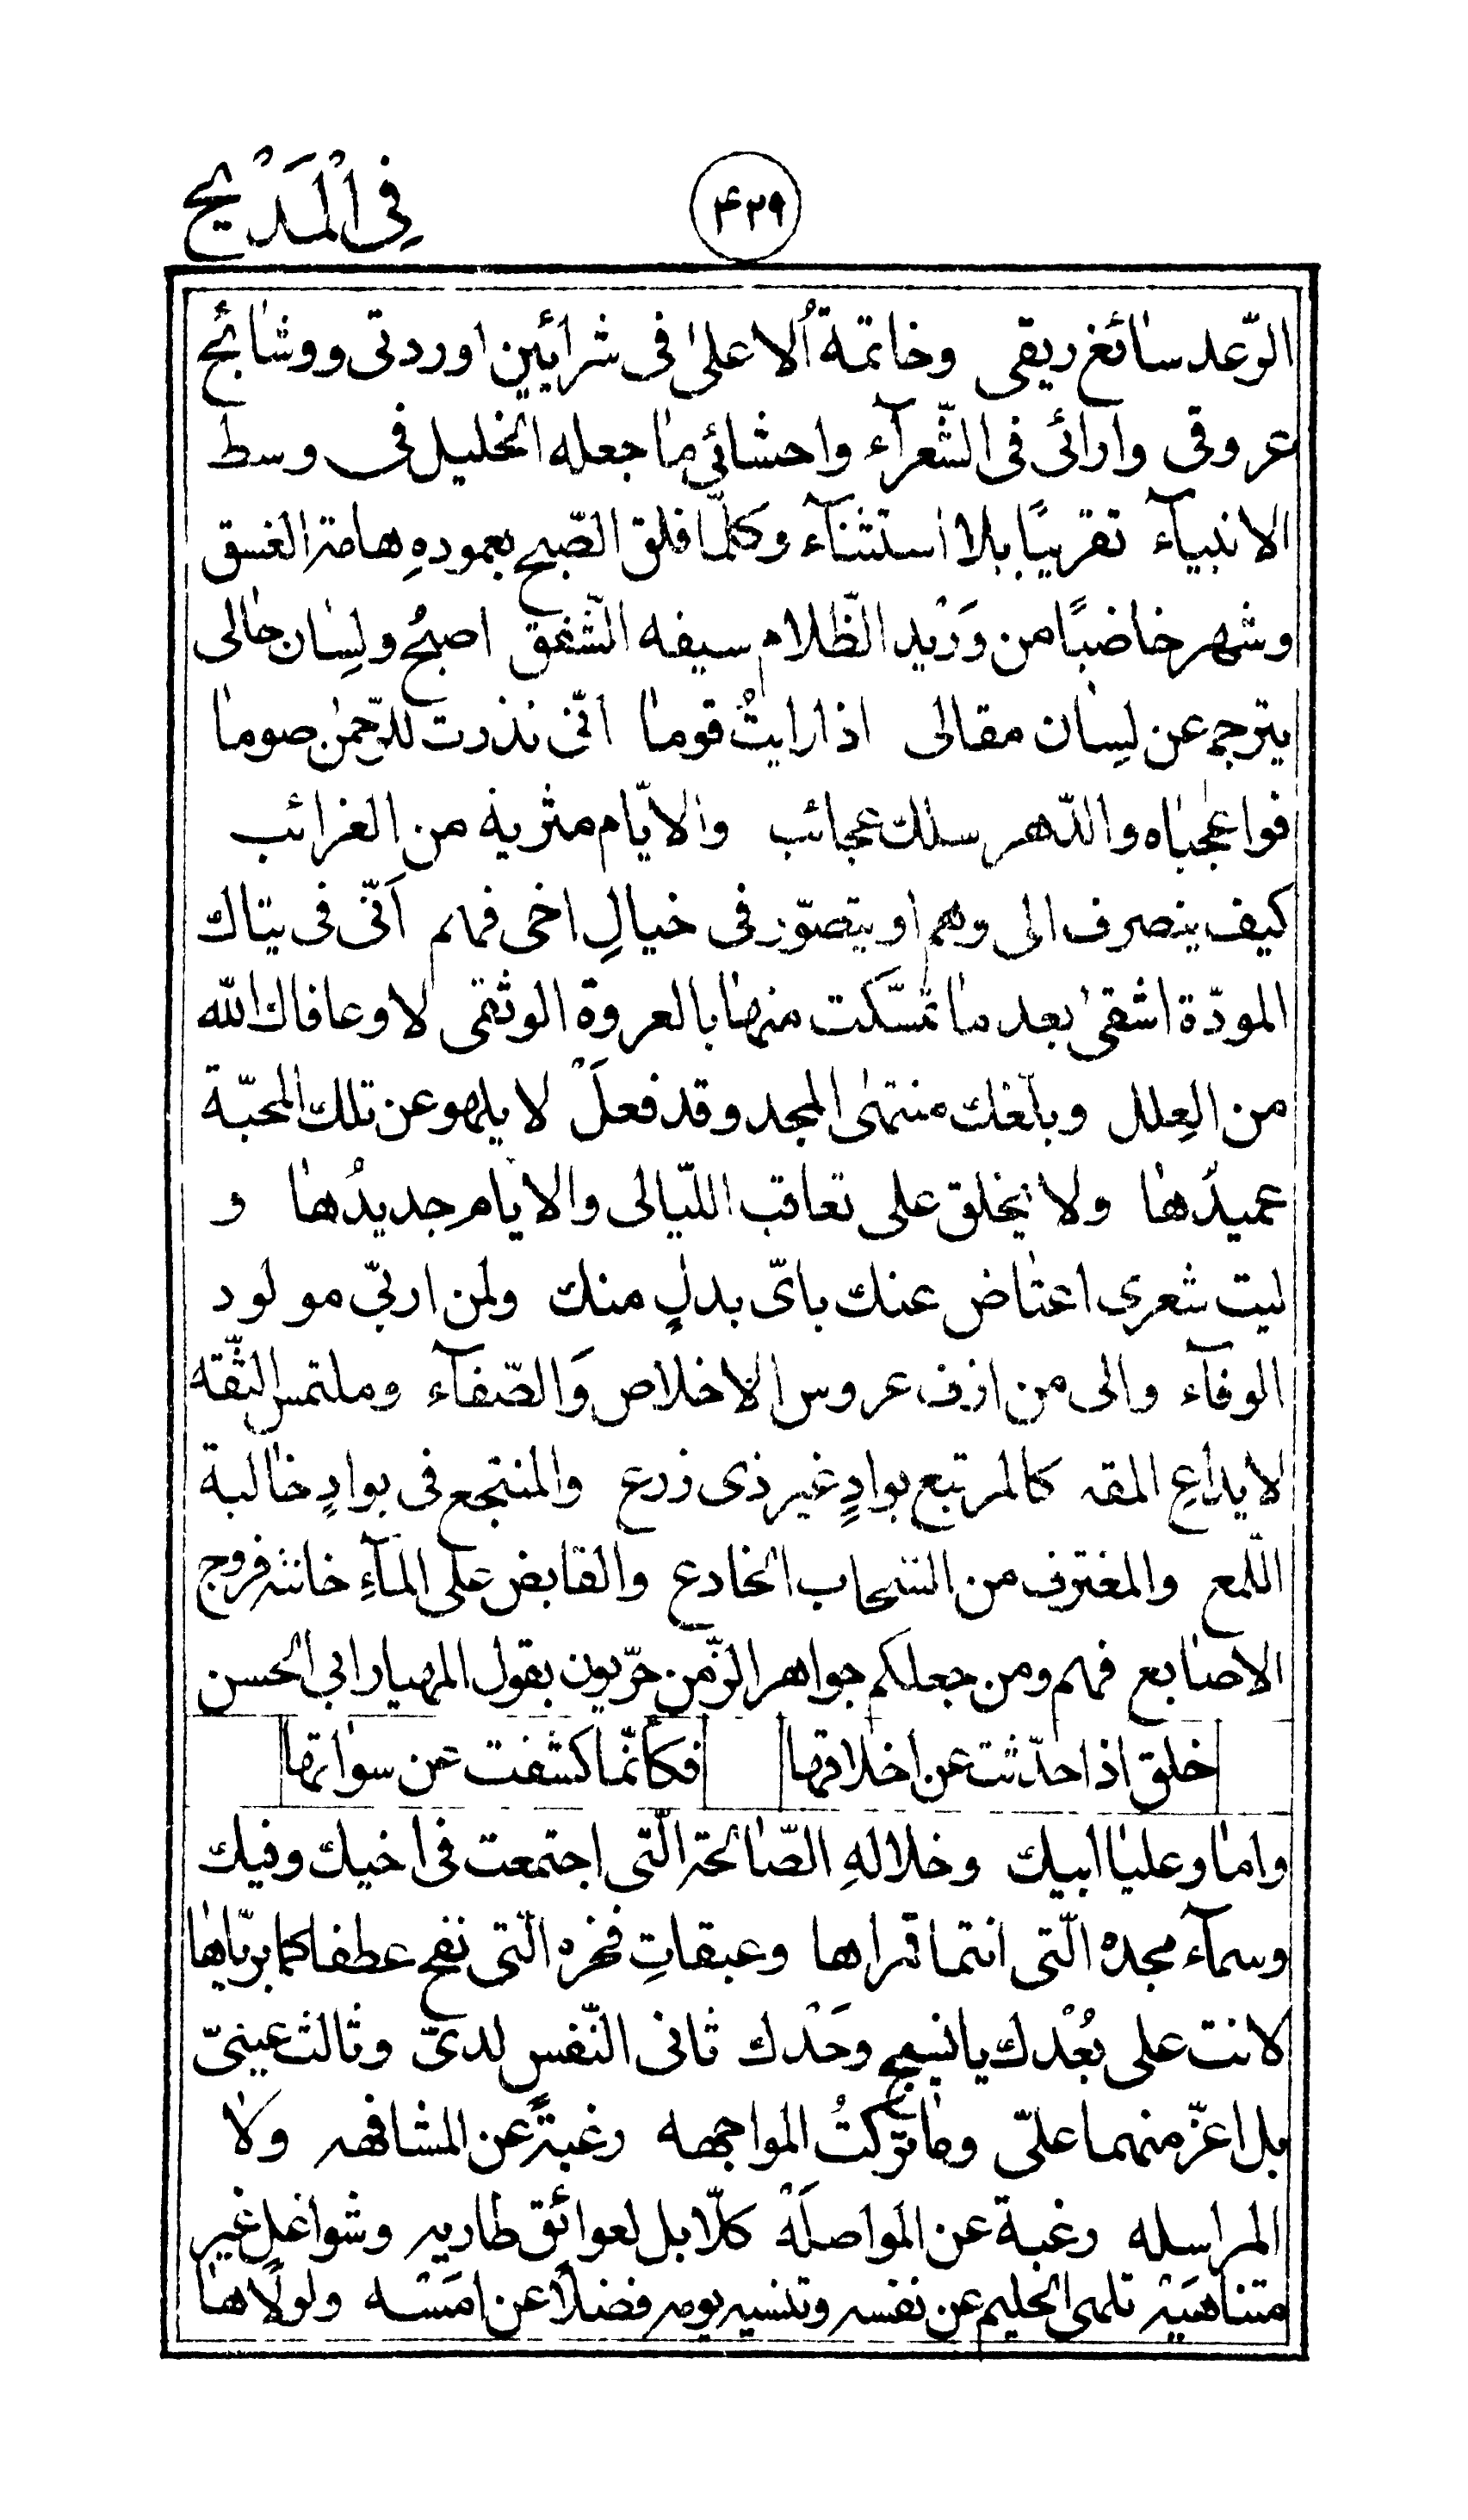 فِی الْمَدْیح
۴۲۹
الرّعد سائغ ریقی وخاتمة ألاعلیٰ فی شرائین اوردتی ووشائج
عروقی وارائی فی الشّعرآء واحشائی ما جعله الخلیل فی وسط
الانبیآء تقریبًا بلا استثنآء وکلّما فلق الصّبح بعمودهِ هامة الغسق
وشهر خاضبًا من وَرْید الظّلام سیفه الشّفق اصبحُ ولِسان حالی
یترجم عن لِسان مقالی اذا رایتُ قوما انّی نذرت للرّحمٰن صوما
فوا عجباه والدّهر سلك عجائب والایّام مثریة من الغرائب
کیف ینصرف الی وهم او یتصوّر فی خیالِ اخی فهم اَنّی فی یتاك
المودّة اشقیٰ بعد ما تمسّکت منها بالعروة الوثقی لا وعافاك الله
من العِلل وبلّغك منتهی المجد وقد فعلَ لا یلهو عن تلك المحبّة
عمیدُها ولا یخلق علی تعاقب اللّیالی والایام جدیدُها و
لیت شعری اعتاض عنك بایّ بدلٍ منك ولمن اربّی مولود
الوفآء والی من ازف عروس الاخلاص وَالصّفآء وملتمس الثّقه
لایداعِ المقه کالمرتبع بوادٍ غیر ذی زرع والمنتجع فی بوادٍ خالبة
اللّمع والمغترف من السّحاب الخادع والقابض علی المآءِ خانته فروج
الاصابع فهم ومن جعلکم جواهر الزّمن حرّیون بقول المهیار ابی الحسن
خلق اذا حدّثت عن اخلاقها فکأنّما کشفت عن سواتها
واما وعلیا ابیك وخلالهِ الصّالحة الّتی اجتمعت فی اخیك وفیك
وسمآء مجده الّتی انتما قمراها وعبقاتِ فخره الّتی نفح عطفاکما بریّاها
لانت علی بُعْدك یا نسیج وحَدْك ثانی النّفس لدیّ وثالث عینیّ
بل اعزّ منهما علیّ وما ترکتُ المواجهه رغبةً عن المشافهه ولا
المراسله رغبة عن المواصلَةْ کلّا بل لعوائق طاریه وشواغل غیر
متناهیَة تلهی الحلیم عن نفسه وتنسیه یومه فضلًا عن امَسْه ولولاها